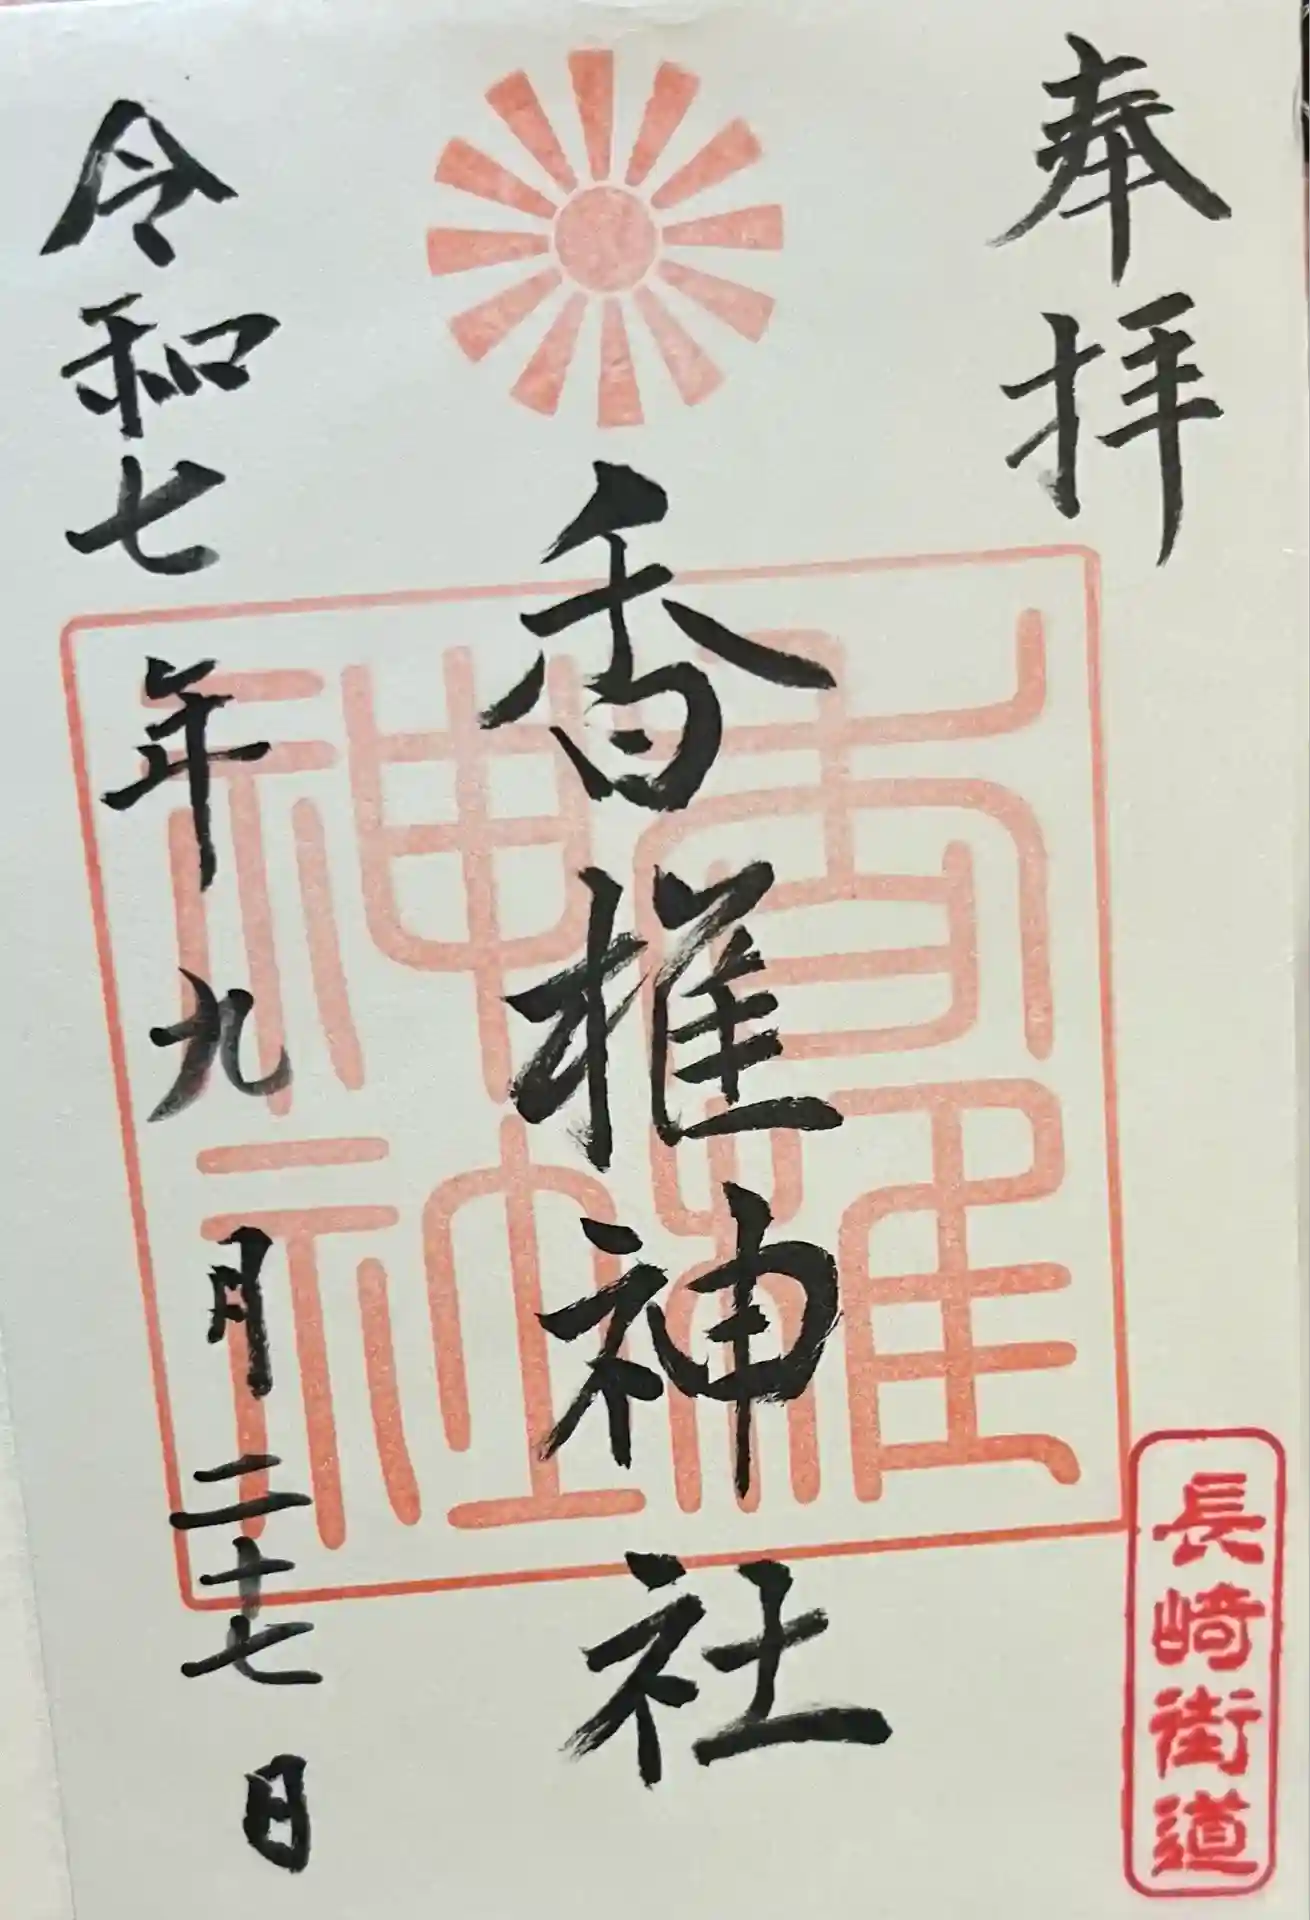 奉拝
長崎街道
香椎神社
香椎
神社
令和七年九月二十七日